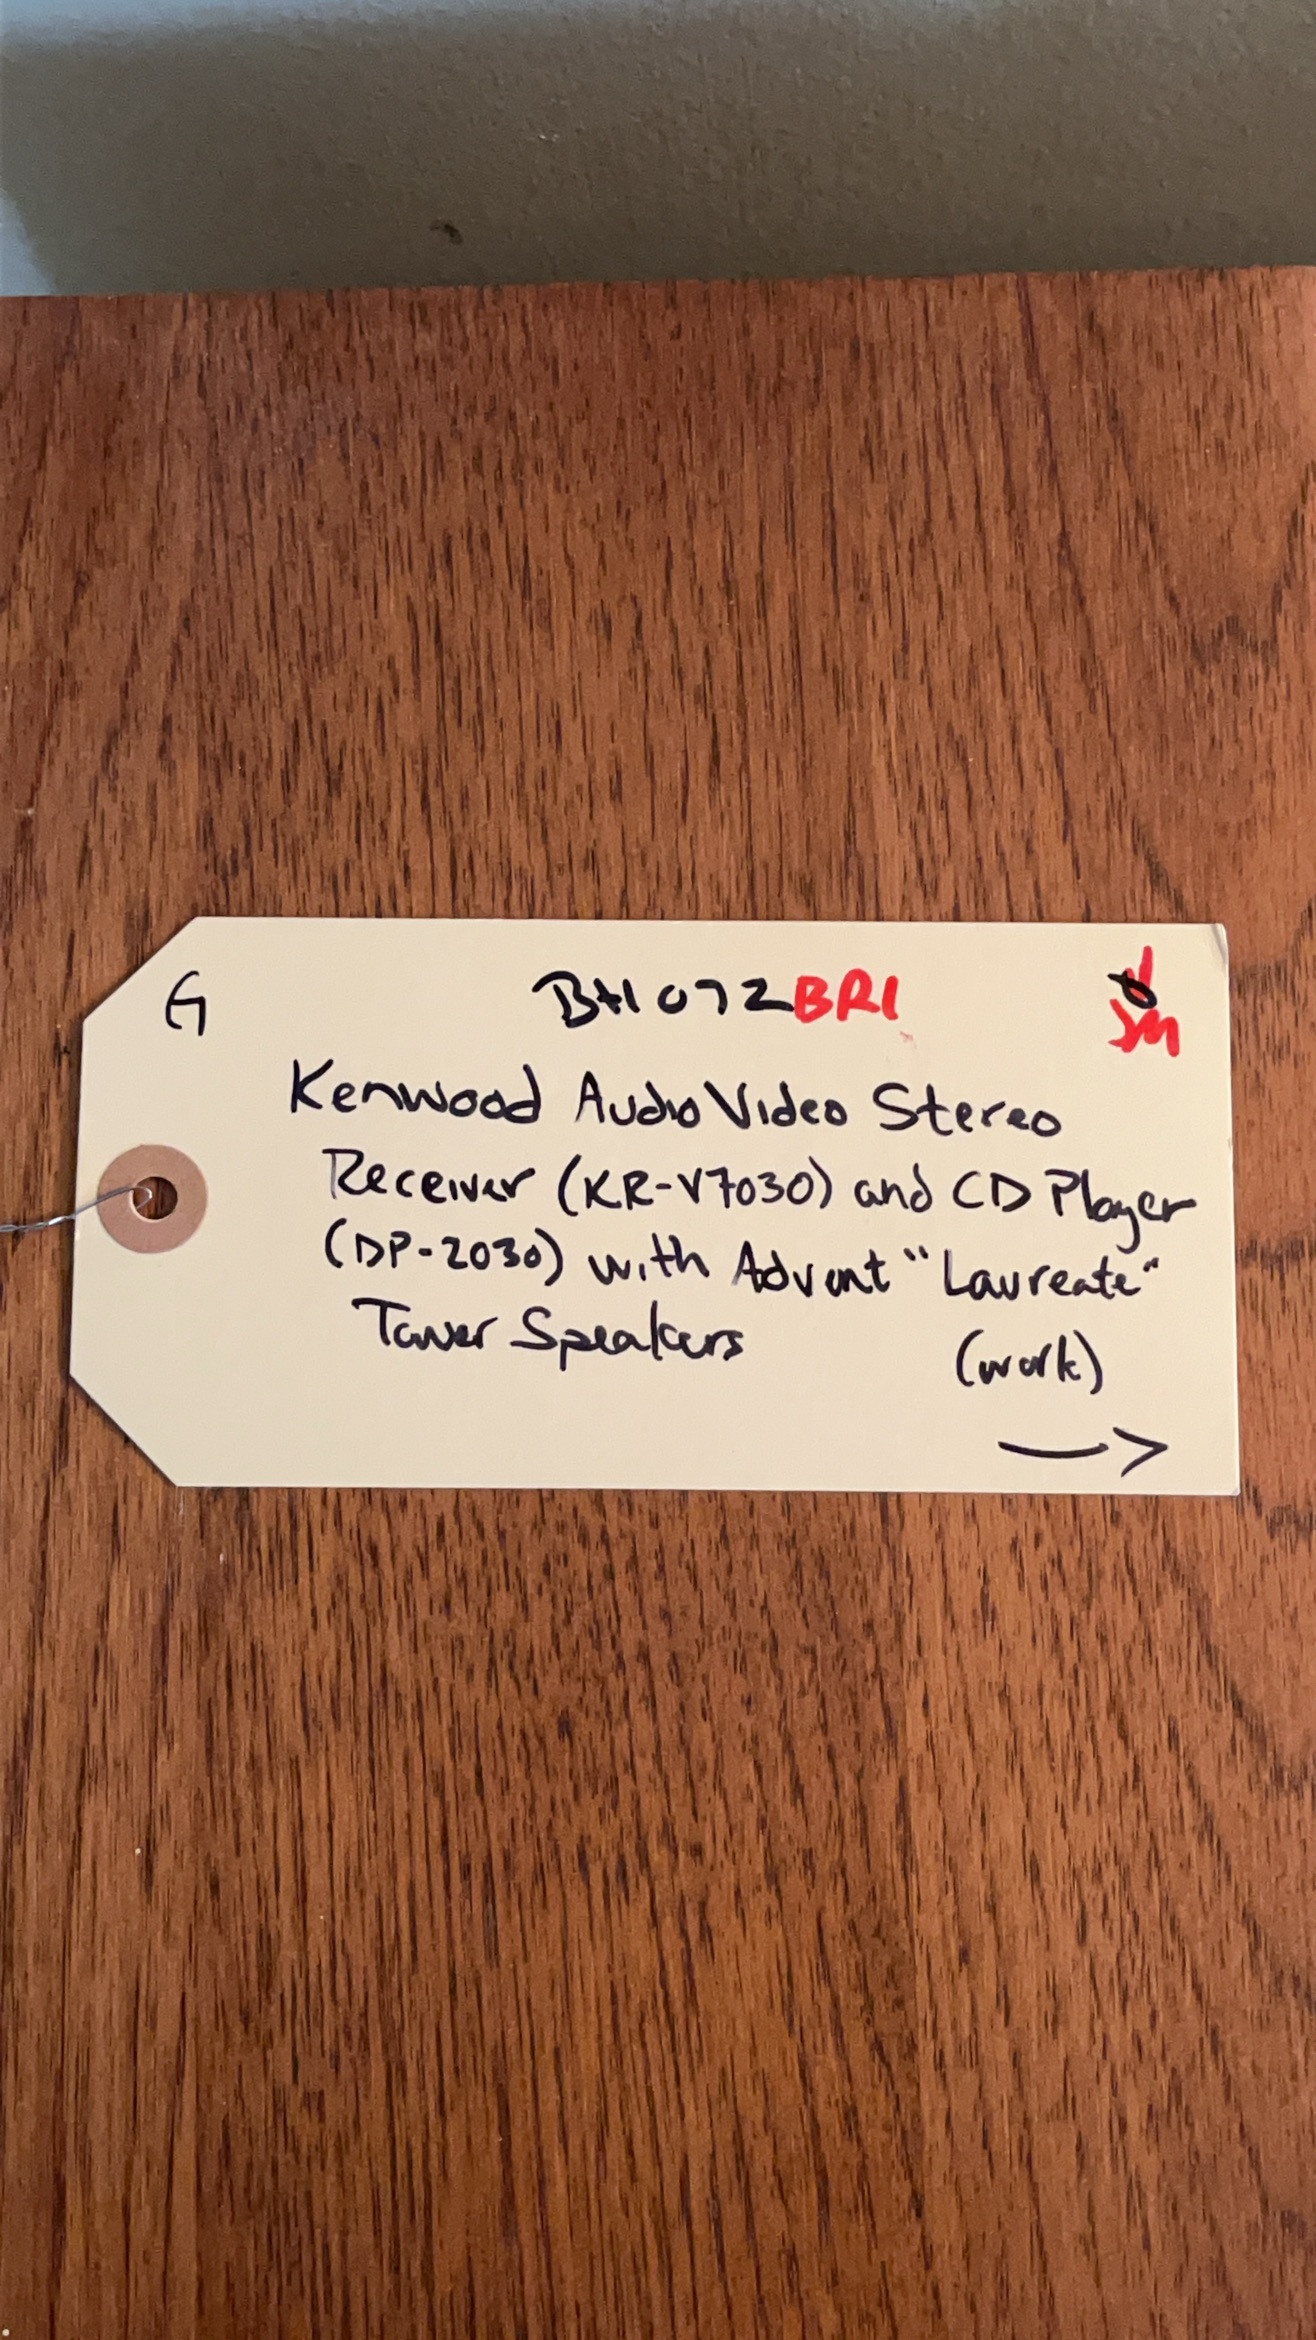 G BH1072BR1 JM
Kenwood Audio Video Stereo
Receiver (KR-V7030) and CD Player
(DP-2030) with Advent "Laureate"
Tower Speakers (work)
→